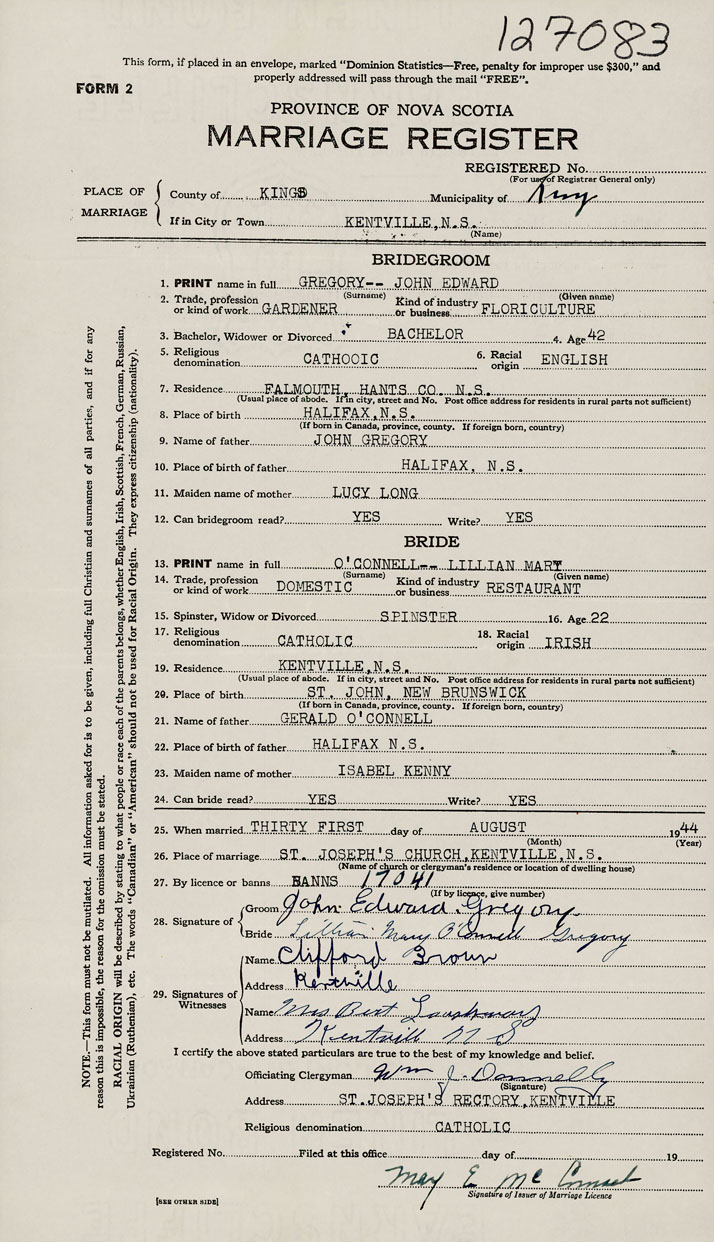 127083
This form, if placed in an envelope, marked "Dominion Statistics—Free, penalty for improper use $300," and
properly addressed will pass through the mail "FREE".
FORM 2
PROVINCE OF NOVA SCOTIA
MARRIAGE REGISTER
REGISTERED No.
(For use of Registrar General only)
PLACE OF MARRIAGE
County of KINGS Municipality of
If in City or Town KENTVILLE,N.S.
(Name)
BRIDEGROOM
1. PRINT name in full GREGORY-- JOHN EDWARD
(Surname) (Given name)
2. Trade, profession or kind of work GARDENER Kind of industry or business FLORICULTURE
3. Bachelor, Widower or Divorced BACHELOR 4. Age 42
5. Religious denomination CATHOOIC 6. Racial origin ENGLISH
7. Residence FALMOUTH, HANTS CO. N.S.
(Usual place of abode. If in city, street and No. Post office address for residents in rural parts not sufficient)
8. Place of birth HALIFAX,N.S.
(If born in Canada, province, county. If foreign born, country)
9. Name of father JOHN GREGORY
10. Place of birth of father HALIFAX, N.S.
11. Maiden name of mother LUCY LONG
12. Can bridegroom read? YES Write? YES
BRIDE
13. PRINT name in full O'CONNELL-- LILLIAN MARY
(Surname) (Given name)
14. Trade, profession or kind of work DOMESTIC Kind of industry or business RESTAURANT
15. Spinster, Widow or Divorced SPINSTER 16. Age 22
17. Religious denomination CATHOLIC 18. Racial origin IRISH
19. Residence KENTVILLE,N.S.
(Usual place of abode. If in city, street and No. Post office address for residents in rural parts not sufficient)
20. Place of birth ST. JOHN, NEW BRUNSWICK
(If born in Canada, province, county. If foreign born, country)
21. Name of father GERALD O'CONNELL
22. Place of birth of father HALIFAX N.S.
23. Maiden name of mother ISABEL KENNY
24. Can bride read? YES Write? YES
25. When married THIRTY FIRST day of AUGUST 1944
(Month) (Year)
26. Place of marriage ST. JOSEPH'S CHURCH,KENTVILLE,N.S.
(Name of church or clergyman's residence or location of dwelling house)
27. By licence or banns BANNS 17041
(If by licence, give number)
28. Signature of
Groom John Edward Gregory
Bride Lillian Mary O'Connell Gregory
29. Signatures of Witnesses
Name Clifford Brown
Address Kentville
Name Mrs Bert
Address Kentville N S
I certify the above stated particulars are true to the best of my knowledge and belief.
Officiating Clergyman Wm J. Donnelly
(Signature)
Address ST.JOSEPH'S RECTORY,KENTVILLE
Religious denomination CATHOLIC
Registered No. Filed at this office day of 19
May E Mc
Signature of Issuer of Marriage Licence
[SEE OTHER SIDE]
NOTE.—This form must not be mutilated. All information asked for is to be given, including full Christian and surnames of all parties, and if for any
reason this is impossible, the reason for the omission must be stated.
RACIAL ORIGIN will be described by stating to what people or race each of the parents belongs, whether English, Irish, Scottish, French, German, Russian,
Ukrainian (Ruthenian), etc. The words "Canadian" or "American" should not be used for Racial Origin. They express citizenship (nationality).